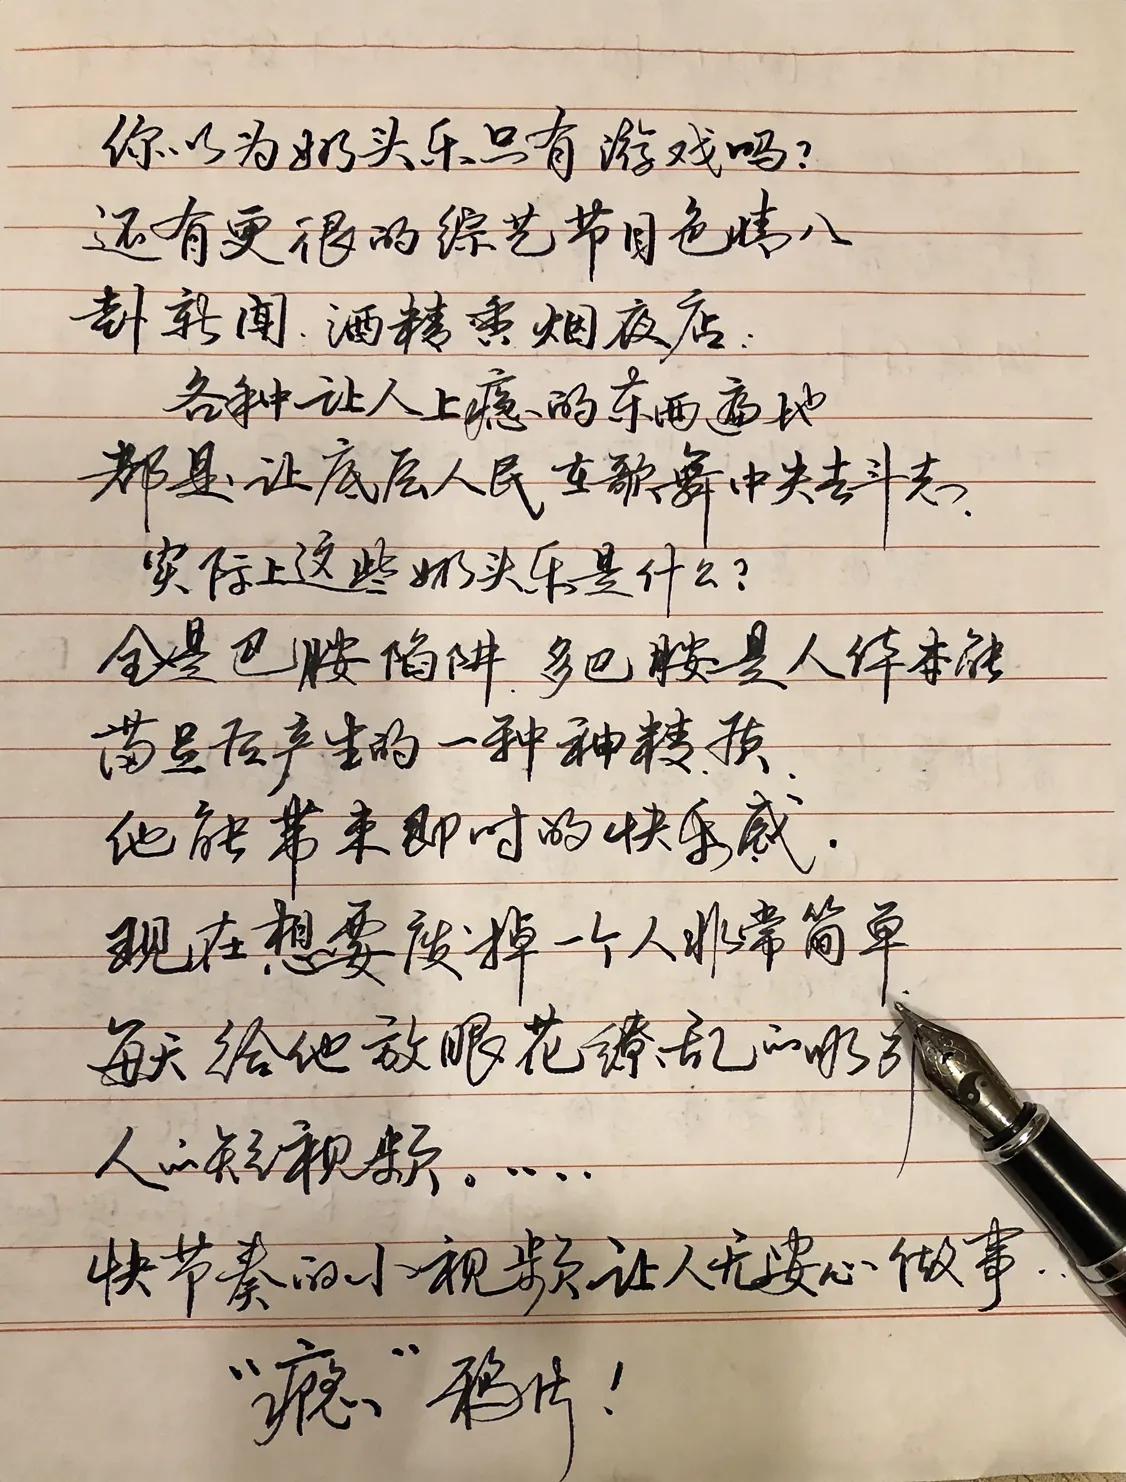 你以为奶头乐只有游戏吗？
还有更很的综艺节目色情八
卦新闻.酒精香烟夜店.
各种让人上瘾的东西遍地
都是.让底层人民在歌舞中失去斗志.
实际上这些奶头乐是什么？
全是巴胺陷阱.多巴胺是人体本能
满足后产生的一种神精质.
他能带来即时的快乐感.
现在想要废掉一个人非常简单.
每天给他放眼花缭乱的吸引
人的短视频。……
快节奏的小视频让人无安心做事..
“瘾”鸦片！